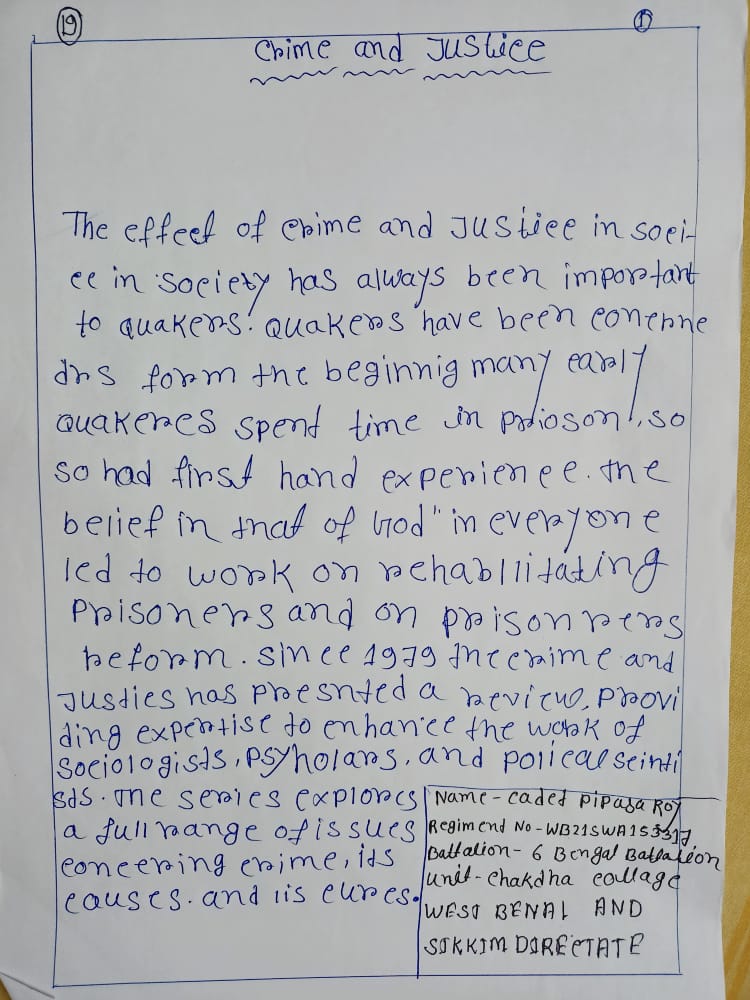 19
1
Crime and Justice
The effect of crime and Justice in soci-
ce in society has always been important
to quakers. Quakers have been concrne
drs form the beginnig many early
Quakeres spend time in prioson!, so
so had first hand experience. The
belief in that of God" in everyone
led to work on rehabliitating
Prisoners and on prison rers
reform. since 1979 the crime and
Justies has presnted a review, provi
ding expertise to enhance the work of
Sociologists, psyholars, and polical scinti
sds. The series explores
a full range of issues
conccring crime, its
causes. and its cures.
Name - caded Pipasa Roy
Regimend No - WB21SWA153317
Battalion - 6 Bengal Battalion
unit - chakdha collage
WEST BENAL AND
SIKKIM DIRECTATE